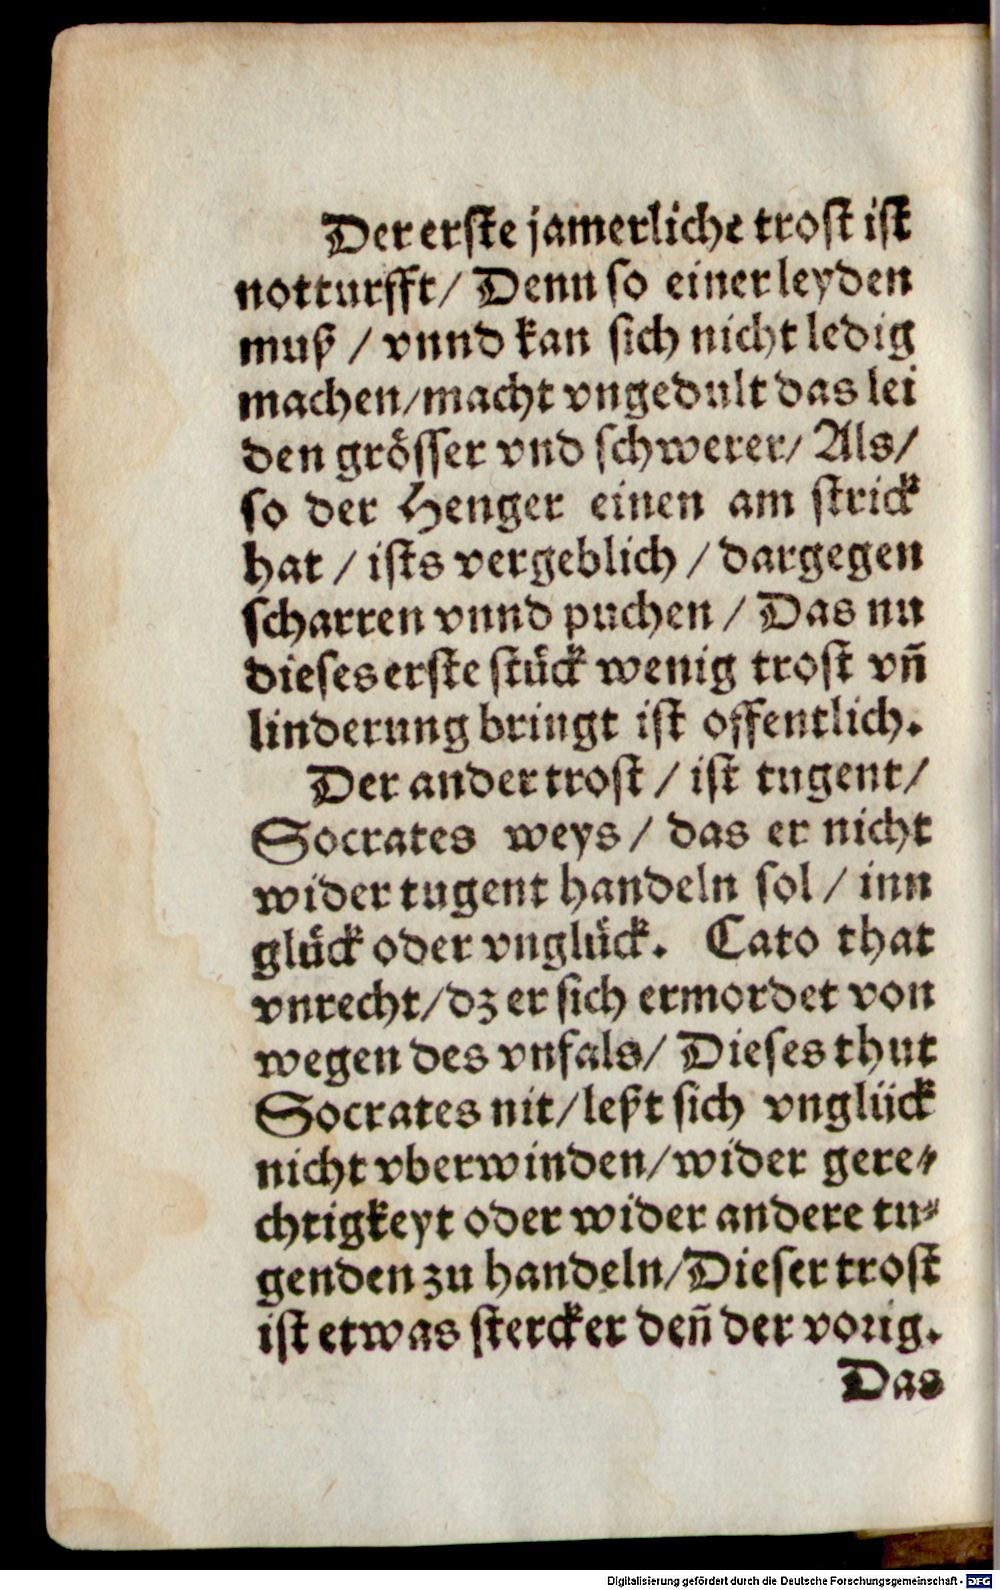 Der erste jamerliche trost ist
notturfft/ Denn so einer leyden
muß / vnnd kan sich nicht ledig
machen/macht vngedult das lei
den grösser vnd schwerer/ Als/
so der Henger einen am strick
hat / ists vergeblich / dargegen
scharren vnnd puchen / Das nu
dieses erste stück wenig trost vñ
linderung bringt ist offentlich.
Der ander trost / ist tugent/
Socrates weys / das er nicht
wider tugent handeln sol / inn
glück oder vnglück. Cato that
vnrecht/dz er sich ermordet von
wegen des vnfals/ Dieses thut
Socrates nit/leßt sich vnglück
nicht vberwinden/wider gere⸗
chtigkeyt oder wider andere tu⸗
genden zu handeln/Dieser trost
ist etwas stercker deñ der vorig.
Das
Digitalisierung gefördert durch die Deutsche Forschungsgemeinschaft - DFG